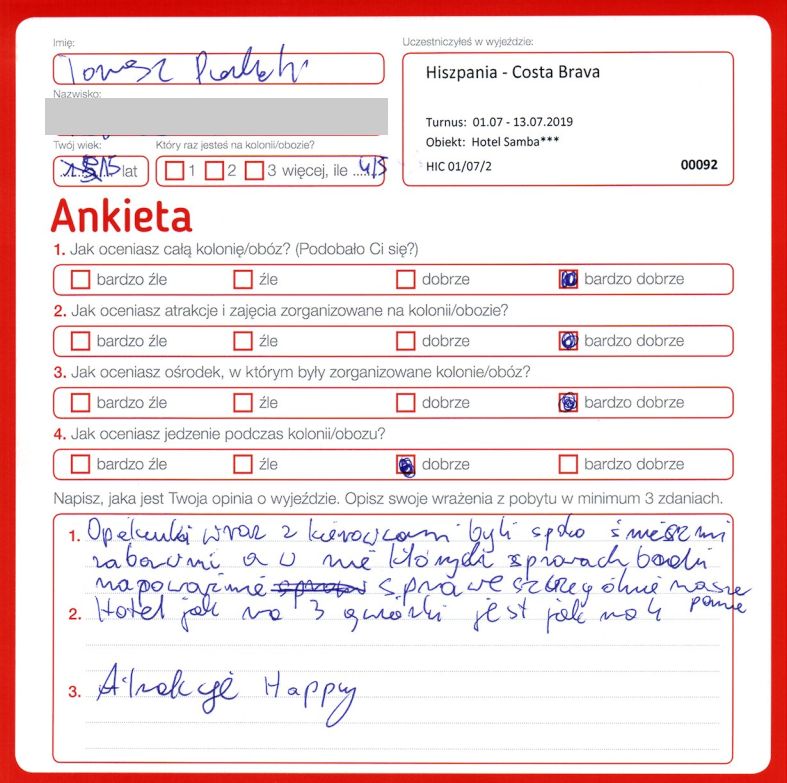 Imię:
Uczestniczyłeś w wyjeździe:
Tomasz
Hiszpania - Costa Brava
Nazwisko:
Turnus: 01.07 - 13.07.2019
Obiekt: Hotel Samba***
HIC 01/07/2 00092
Twój wiek: Który raz jesteś na kolonii/obozie?
15 lat 1 2 3 więcej, ile 4/5
Ankieta
1. Jak oceniasz całą kolonię/obóz? (Podobało Ci się?)
bardzo źle źle dobrze bardzo dobrze
2. Jak oceniasz atrakcje i zajęcia zorganizowane na kolonii/obozie?
bardzo źle źle dobrze bardzo dobrze
3. Jak oceniasz ośrodek, w którym były zorganizowane kolonie/obóz?
bardzo źle źle dobrze bardzo dobrze
4. Jak oceniasz jedzenie podczas kolonii/obozu?
bardzo źle źle dobrze bardzo dobrze
Napisz, jaka jest Twoja opinia o wyjeździe. Opisz swoje wrażenia z pobytu w minimum 3 zdaniach.
1. wraz z kierowcami byli śmieszni
zabawni a w nie których sprawach
szczególnie nasze
2. Hotel jak na 3 gwiazdki jest jak na 4 panie
3. Atrakcje Happy